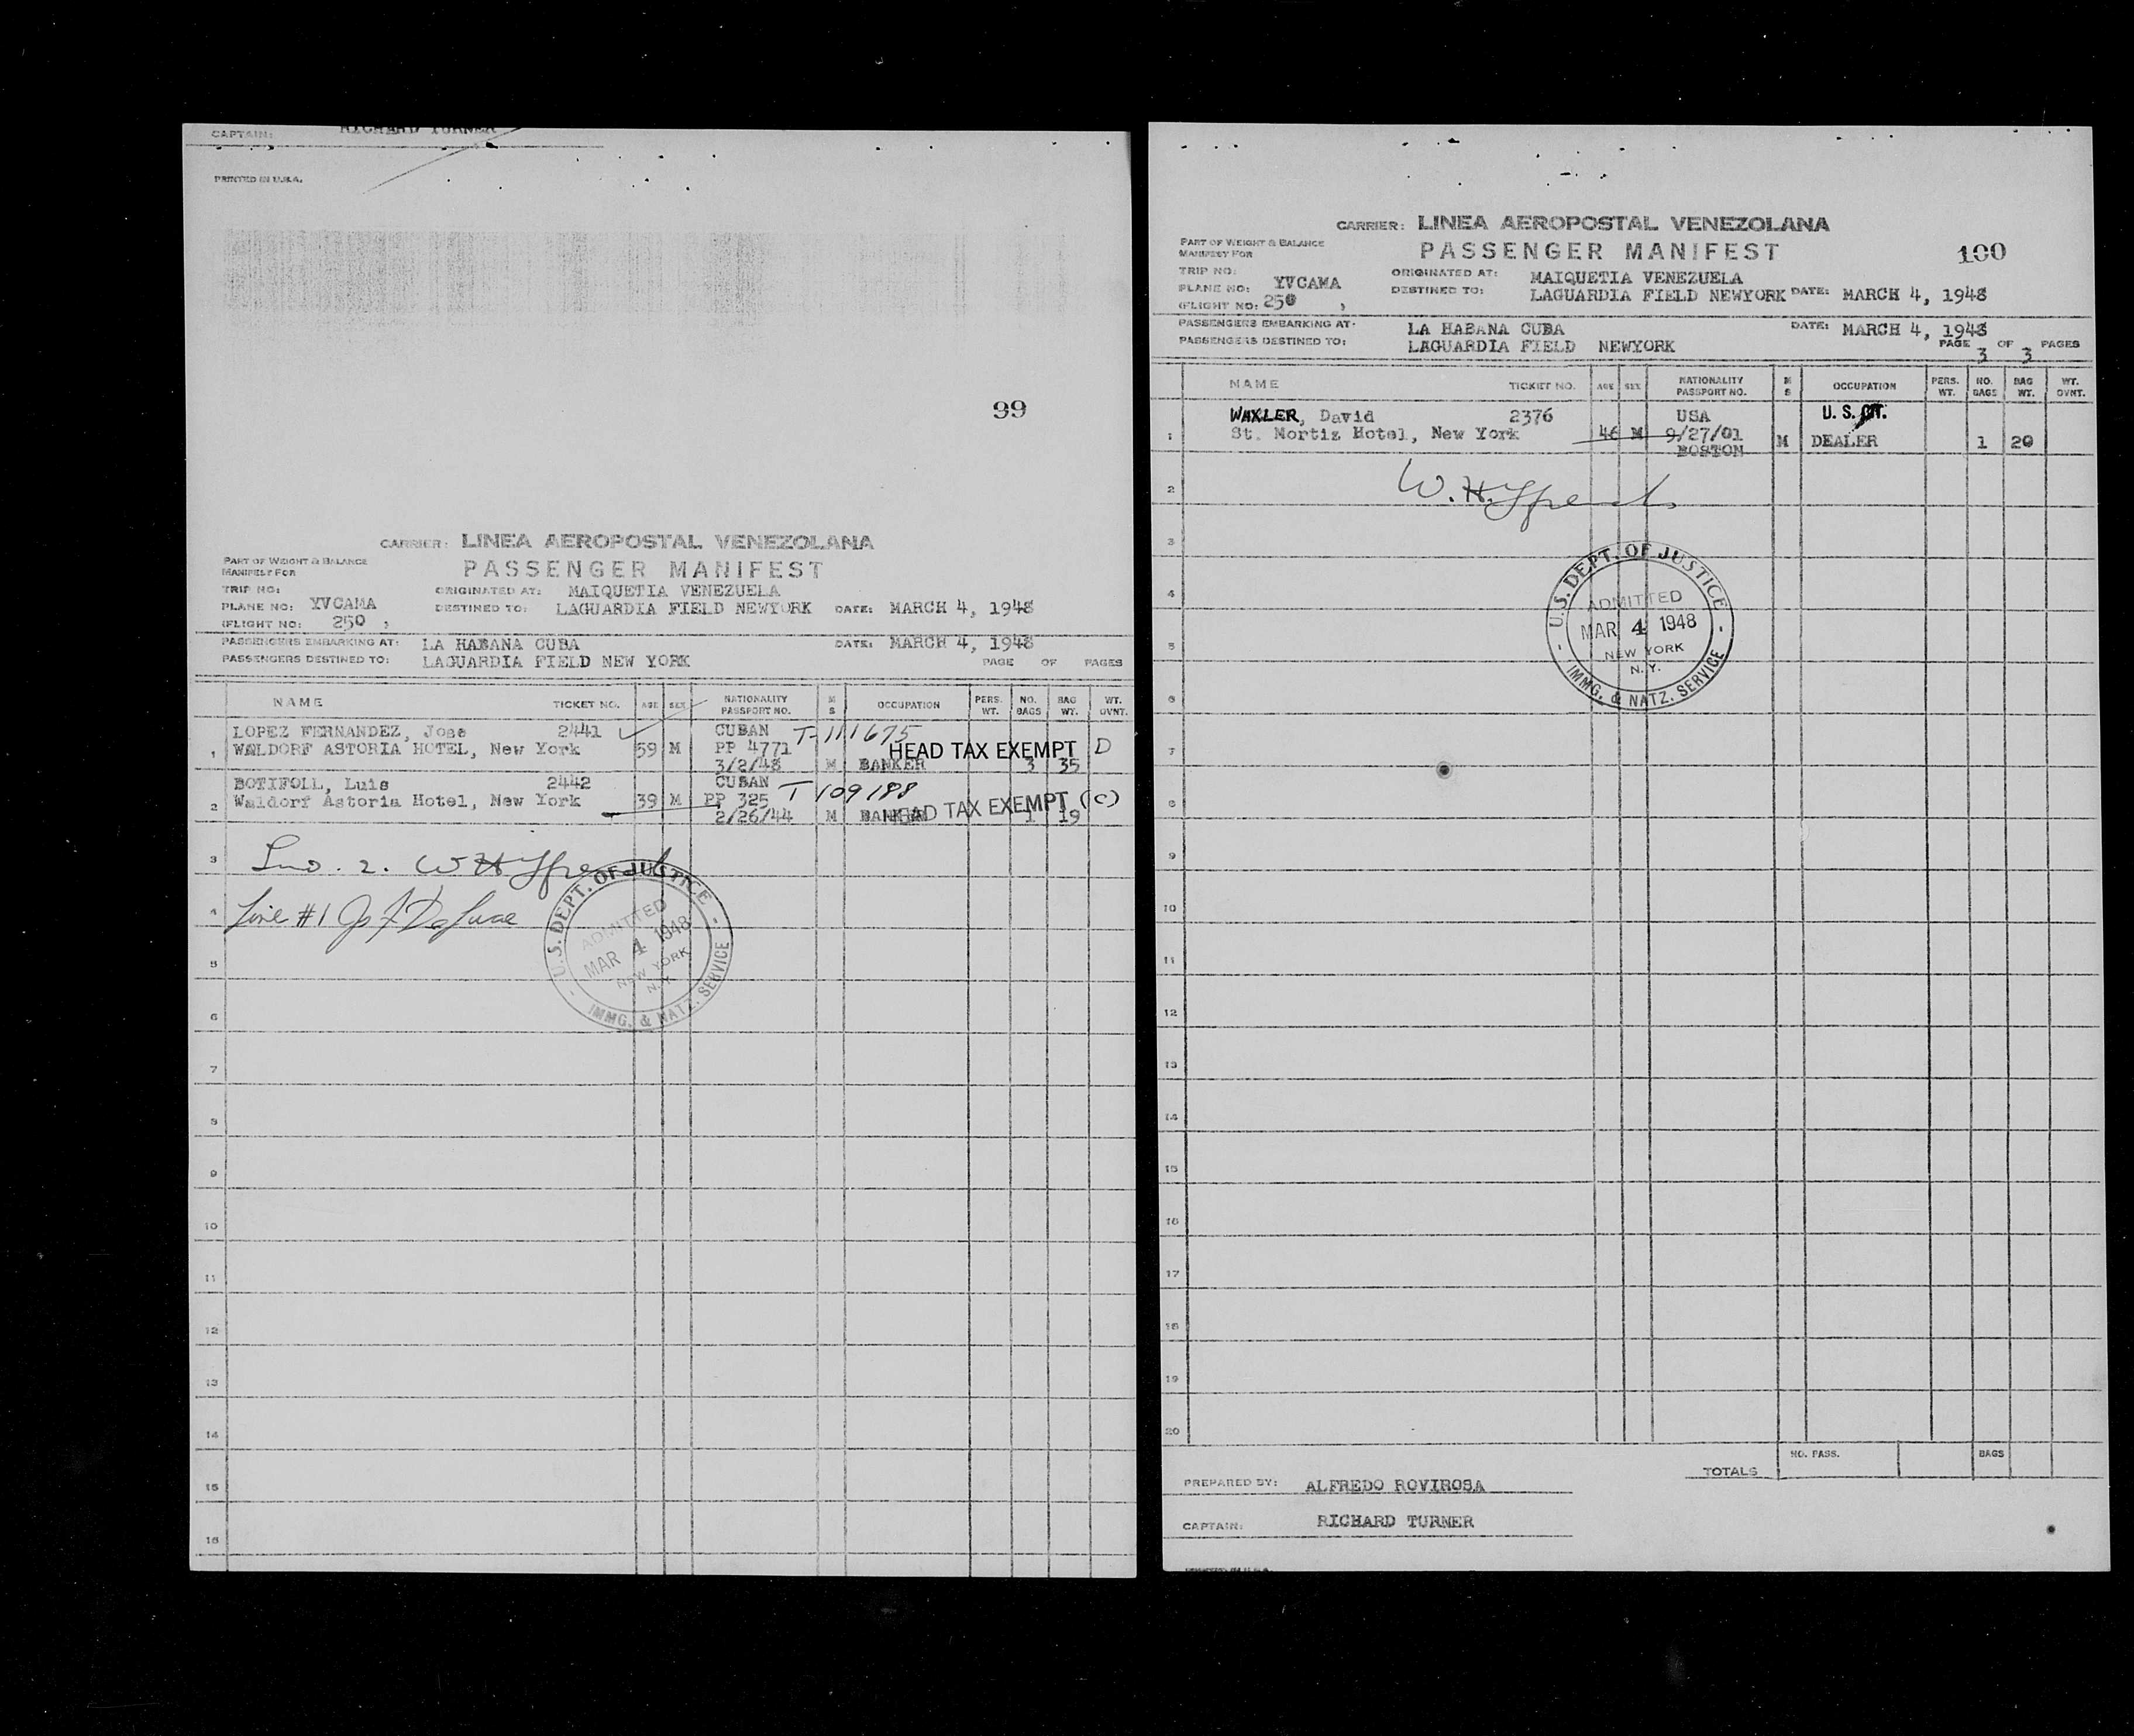 CAPTAIN: RICHARD TURNER
PRINTED IN U.S.A.
99
CARRIER: LINEA AEROPOSTAL VENEZOLANA
PART OF WEIGHT & BALANCE
MANIFEST FOR
PASSENGER MANIFEST
TRIP NO: ORIGINATED AT: MAIQUETIA VENEZUELA
PLANE NO: YVCAMA DESTINED TO: LAGUARDIA FIELD NEWYORK DATE: MARCH 4, 1948
(FLIGHT NO: 250 )
PASSENGERS EMBARKING AT: LA HABANA CUBA DATE: MARCH 4, 1948
PASSENGERS DESTINED TO: LAGUARDIA FIELD NEW YORK PAGE OF PAGES
NAME TICKET NO. AGE SEX NATIONALITY PASSPORT NO. M S OCCUPATION PERS. WT. NO. BAGS BAG WT. WT. OVNT.
LOPEZ FERNANDEZ, Jose 2441 CUBAN T-111675
1 WALDORF ASTORIA HOTEL, New York 59 M PP 4771 HEAD TAX EXEMPT D
3/2/48 M BANKER 3 35
BOTIFOLL, Luis 2442 CUBAN T 109188
2 Waldorf Astoria Hotel, New York 39 M PP 325 HEAD TAX EXEMPT (C)
2/26/44 M BANKER 1 19
3
4 Line #1
U.S. DEPT. OF JUSTICE
ADMITTED
MAR 4 1948
NEW YORK
N.Y.
IMMG. & NATZ. SERVICE
5
6
7
8
9
10
11
12
13
14
15
16
CARRIER: LINEA AEROPOSTAL VENEZOLANA
PART OF WEIGHT & BALANCE
MANIFEST FOR
PASSENGER MANIFEST 100
TRIP NO: ORIGINATED AT: MAIQUETIA VENEZUELA
PLANE NO: YVCAMA DESTINED TO: LAGUARDIA FIELD NEWYORK DATE: MARCH 4, 1948
(FLIGHT NO: 250 )
PASSENGERS EMBARKING AT: LA HABANA CUBA DATE: MARCH 4, 1948
PASSENGERS DESTINED TO: LAGUARDIA FIELD NEWYORK PAGE 3 OF 3 PAGES
NAME TICKET NO. AGE SEX NATIONALITY PASSPORT NO. M S OCCUPATION PERS. WT. NO. BAGS BAG WT. WT. OVNT.
WAXLER, David 2376 USA U. S. CIT.
1 St. Mortiz Hotel, New York 46 M 9/27/01 M DEALER 1 20
BOSTON
2 W. H.
3
U.S. DEPT. OF JUSTICE
ADMITTED
MAR 4 1948
NEW YORK
N.Y.
IMMG. & NATZ. SERVICE
4
5
6
7
8
9
10
11
12
13
14
15
16
17
18
19
20
TOTALS NO. PASS. BAGS
PREPARED BY: ALFREDO ROVIROSA
CAPTAIN: RICHARD TURNER